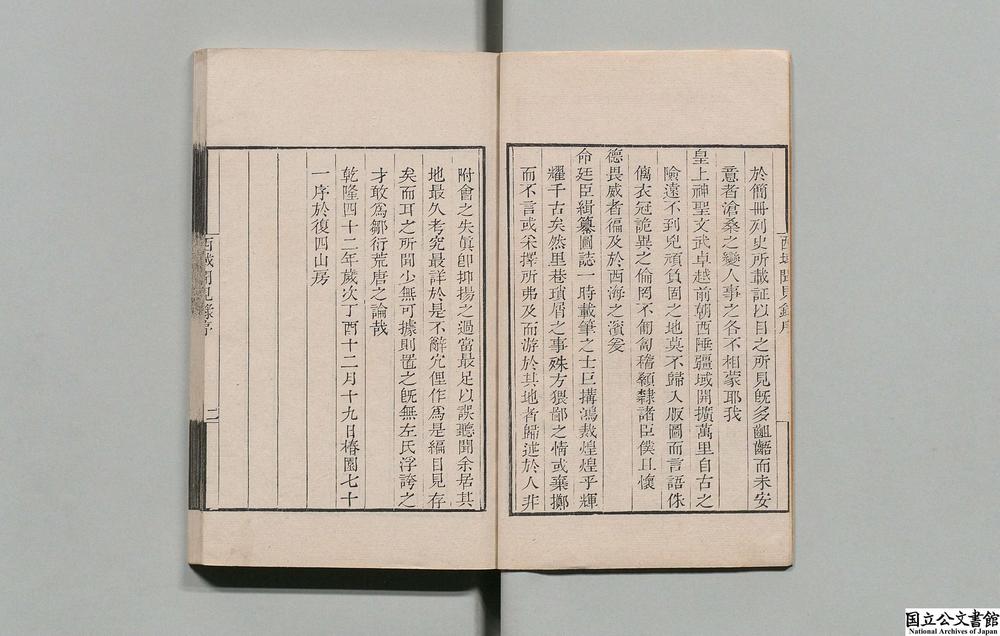 於簡冊列史所載証以目之所見旣多齟齬而未安
意者滄桑之變人事之各不相蒙耶我
皇上神聖文武卓越前朝西陲疆域開擴萬里自古之
險遠不到兇頑負固之地莫不歸入版圖而言語侏
𠌯衣冠詭異之倫罔不匍匐稽顙隸諸臣僕且懷
德畏威者徧及於西海之濱爰
命廷臣緝纂圖誌一時載筆之士巨搆鴻裁煌煌乎輝
耀千古矣然里巷瑣屑之事殊方猥鄙之情或棄擲
而不言或采擇所弗及而游於其地者歸述於人非
西域聞見錄序
附會之失眞卽抑揚之過當最足以誤聽聞余居其
地最久考究最詳於是不辭冗俚作爲是編目見存
矣而耳之所聞少無可據則置之旣無左氏浮誇之
才敢爲鄒衍荒唐之論哉
乾隆四十二年歲次丁酉十二月十九日椿園七十
一序於復四山房
西域聞見錄序
二
国立公文書館
National Archives of Japan